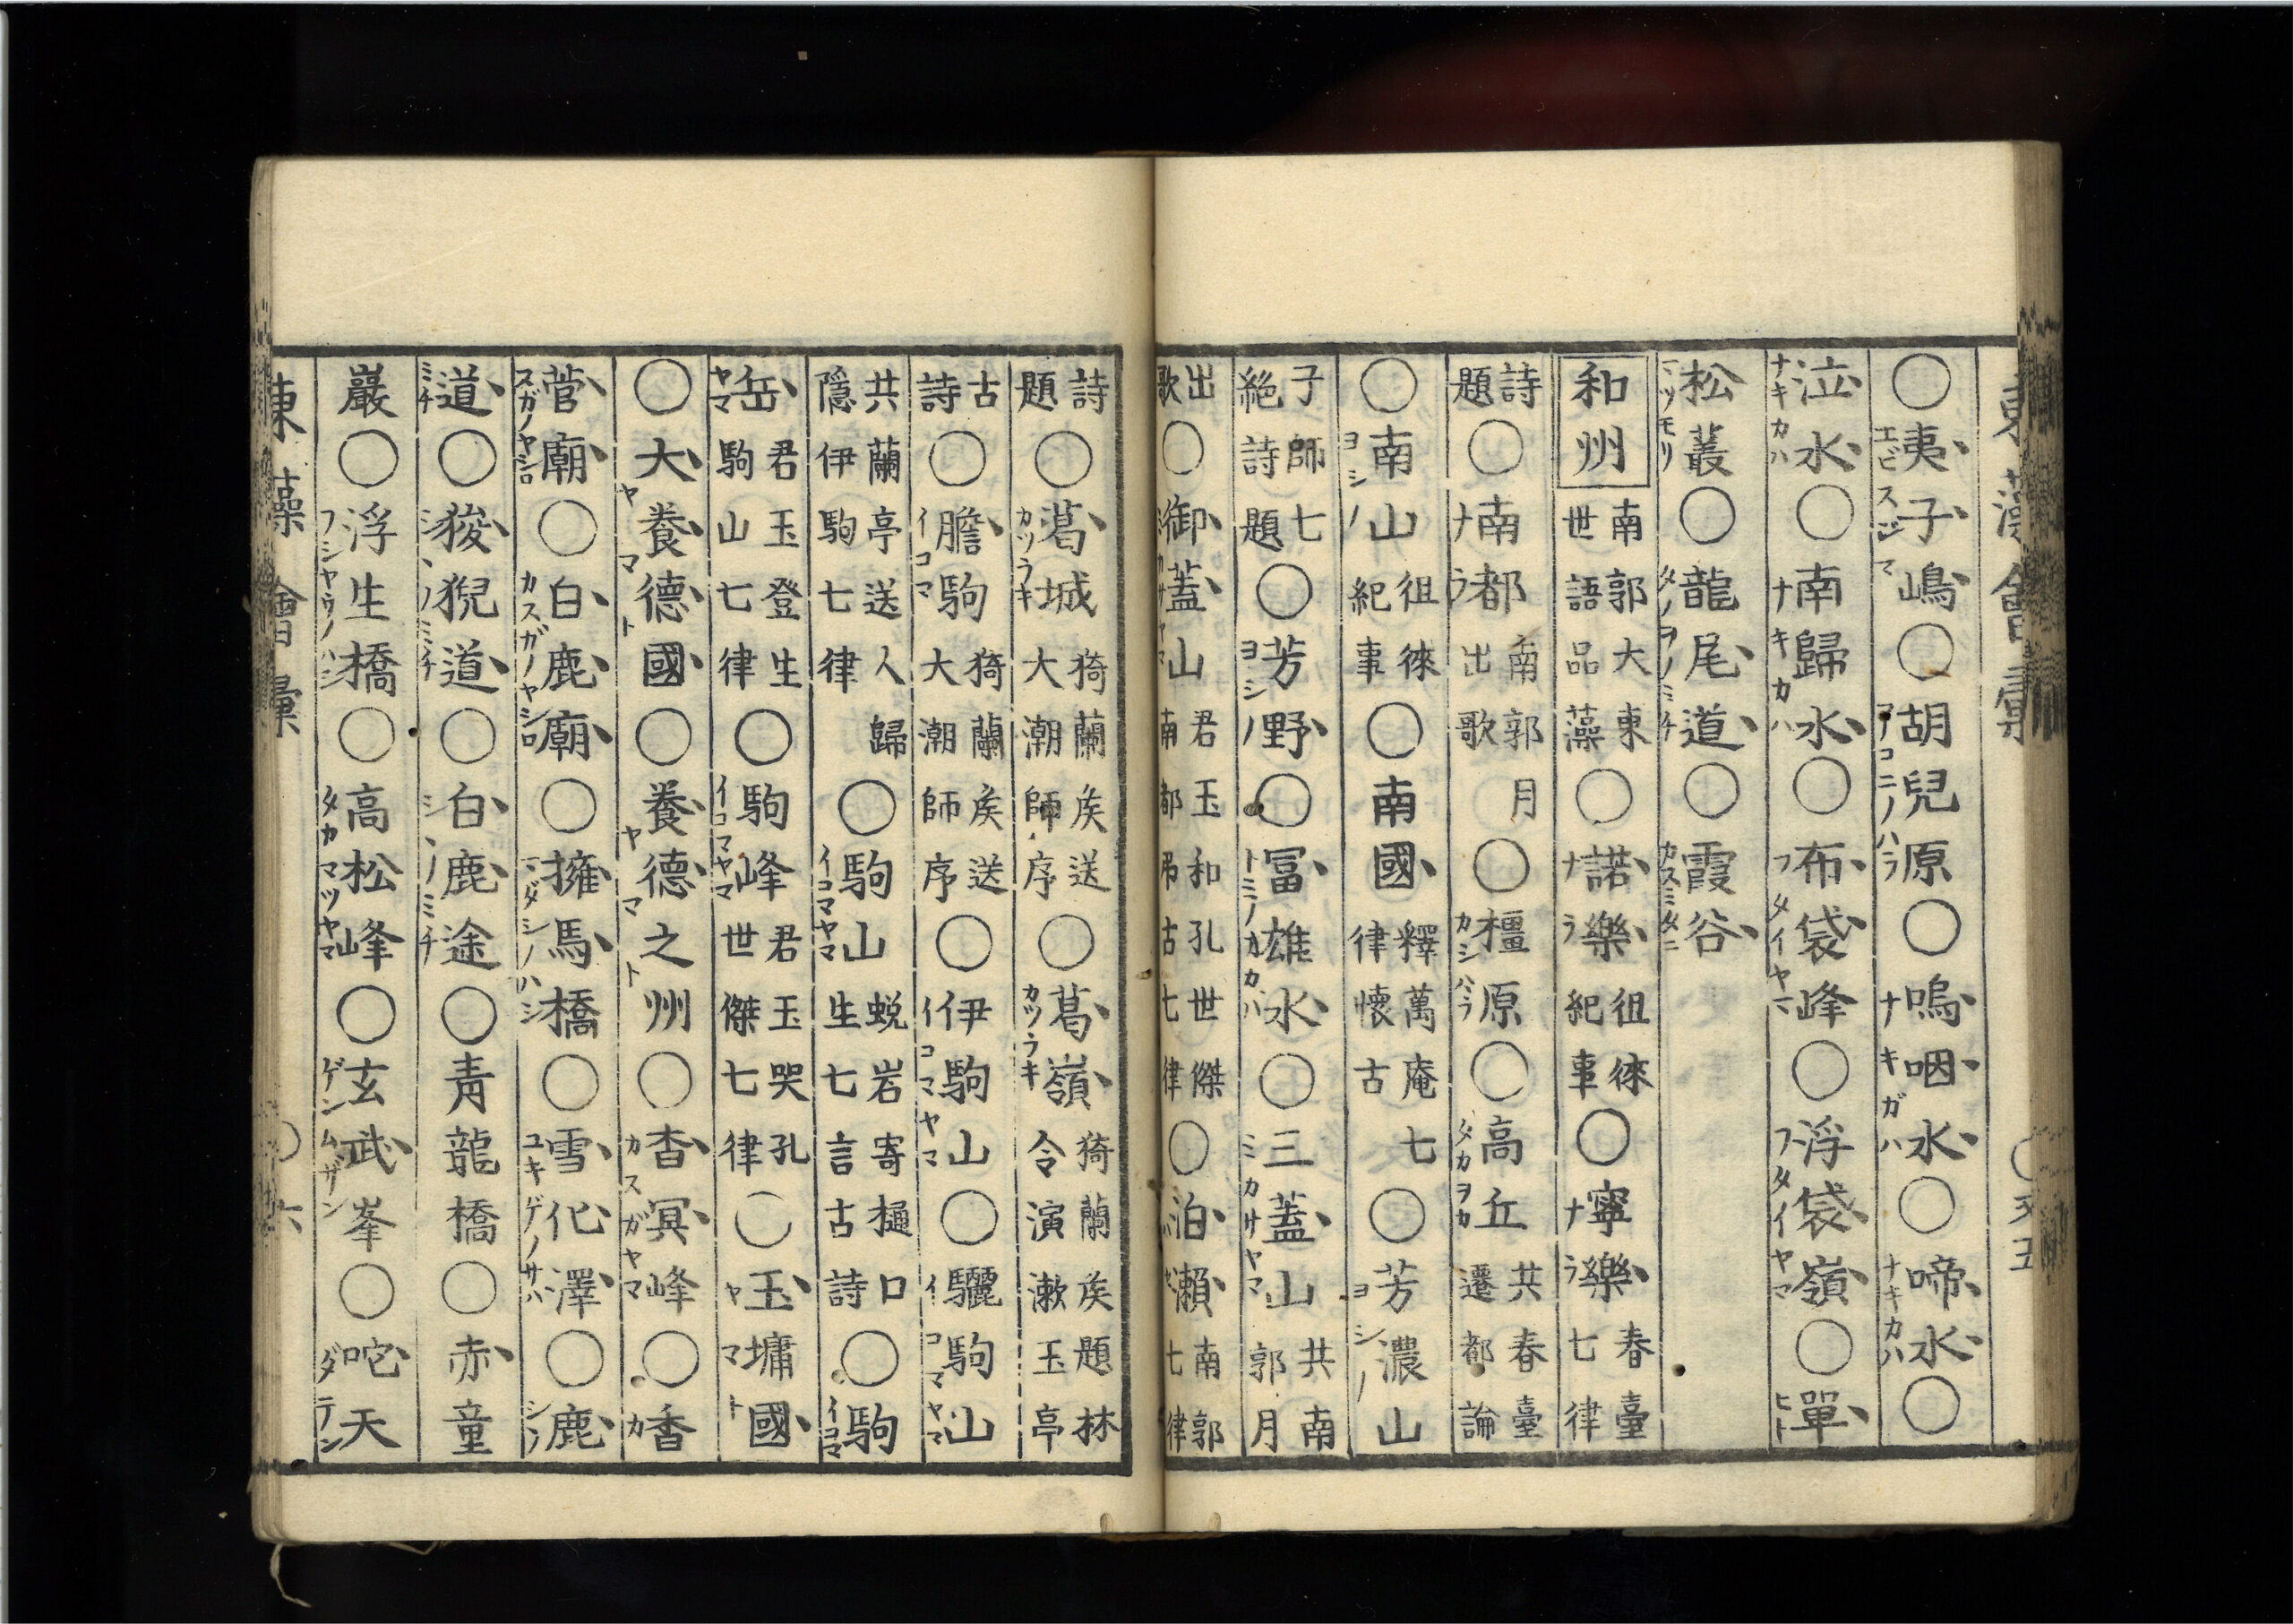 東藻會彙 〇 五
〇夷子嶋エビスジマ〇胡兒原アコニノハラ〇嗚咽水ナキガハ〇啼水ナキカハ〇
泣水ナキカハ〇南歸水ナキカハ〇布袋峰フタイヤマ〇浮袋嶺フタイヤマ〇單ヒト
松叢マツモリ〇龍尾道タノヲノミチ〇霞谷カスミタニ
和州 南郭大東世語品藻〇諾樂ナラ 徂徠紀事〇寧樂ナラ 春臺七律
詩題〇南都ナラ 南郭月出歌〇橿原カシハラ〇高丘タカヲカ 共春臺遷都論
〇南山ヨシノ 徂徠紀事〇南國 釋萬庵七律懷古〇芳濃山ヨシノ
子師七絶詩題〇芳野ヨシノ〇冨雄水トミノヲカハ〇三蓋山ミカサヤマ 共南郭月
出歌〇御蓋山ミカサヤマ 君玉和孔世傑南都弔古七律〇泊瀬 南郭七律
詩題〇葛城カツラキ 猗蘭侯送大潮師序〇葛嶺カツラキ 猗蘭侯題林令演漱玉亭
古詩〇膽駒イコマ 猗蘭侯送大潮師序〇伊駒山イコマヤマ〇驪駒山イコマヤマ
共蘭亭送人歸隱伊駒七律〇駒山イコマヤマ 蛻岩寄樋口生七言古詩〇駒イコマ
岳ヤマ 君玉登生駒山七律〇駒峰イコマヤマ 君玉哭孔世傑七律〇玉墉國ヤマト
〇大養德國ヤマト〇養德之州ヤマト〇杳冥峰カスガヤマ〇香カ
菅廟スガノヤシロ〇白鹿廟カスガノヤシロ〇擁馬橋マダシノハシ〇雪化澤ユキゲノサハ〇鹿シノ
道ミチ〇狻猊道シヽノミチ〇白鹿途シヽノミチ〇青龍橋〇赤童
巖〇浮生橋フシヤウノハシ〇高松峰タカマツヤマ〇玄武峯ゲンムザン〇咜天ダテン
東藻會彙 〇 六